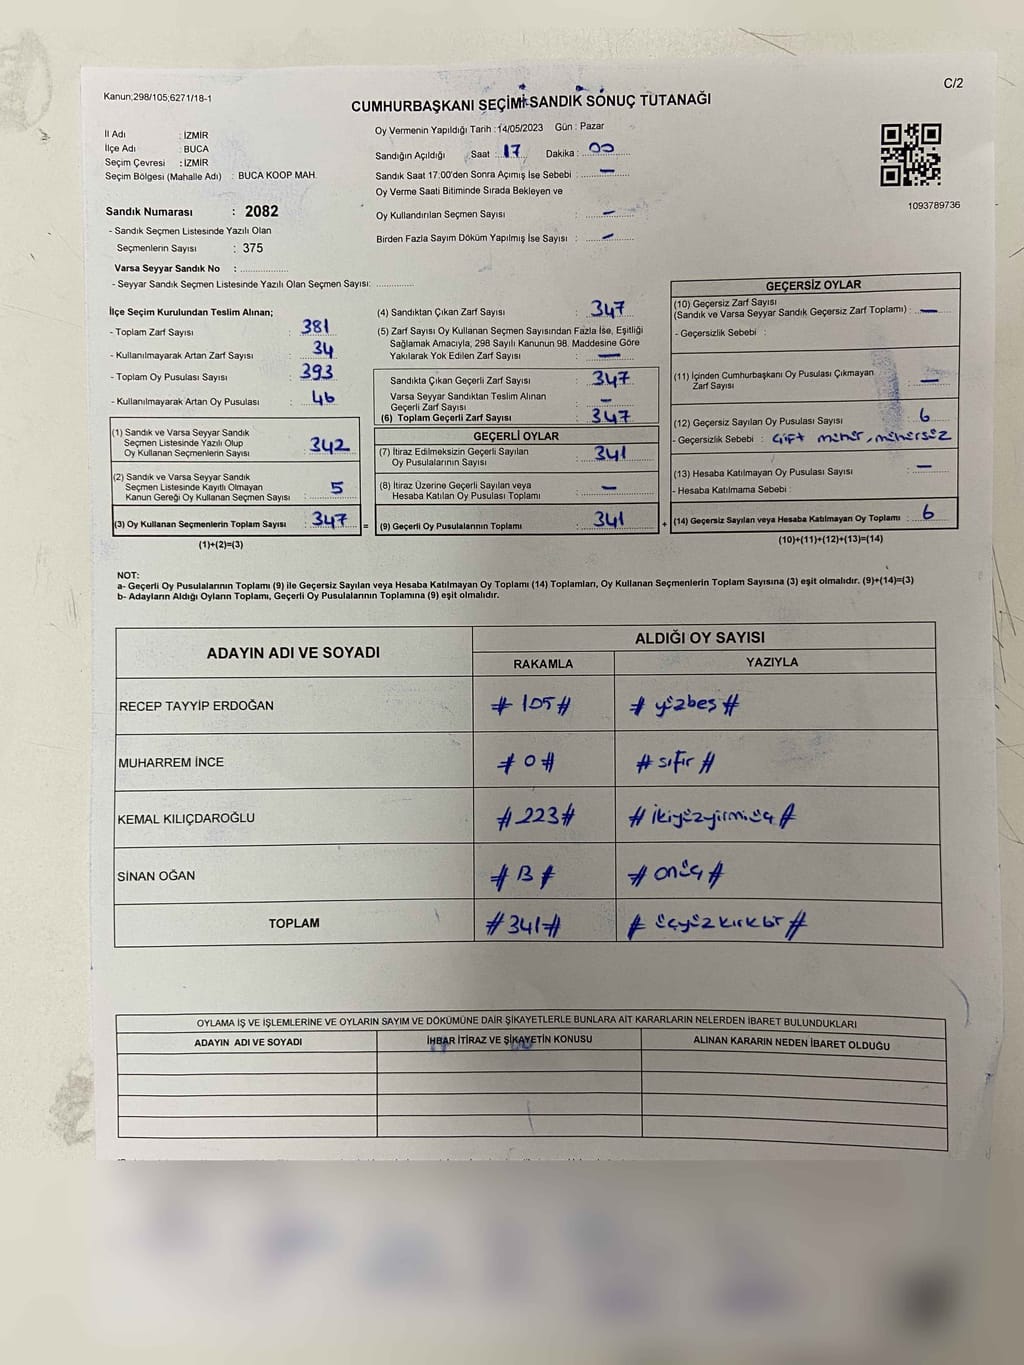 C/2
Kanun;298/105;6271/18-1
CUMHURBAŞKANI SEÇİMİ SANDIK SONUÇ TUTANAĞI
İl Adı : İZMİR
İlçe Adı : BUCA
Seçim Çevresi : İZMİR
Seçim Bölgesi (Mahalle Adı) : BUCA KOOP MAH.
Sandık Numarası : 2082
- Sandık Seçmen Listesinde Yazılı Olan
Seçmenlerin Sayısı : 375
Varsa Seyyar Sandık No :
- Seyyar Sandık Seçmen Listesinde Yazılı Olan Seçmen Sayısı:
Oy Vermenin Yapıldığı Tarih :14/05/2023 Gün : Pazar
Sandığın Açıldığı Saat : 17 Dakika : 00
Sandık Saat 17:00'den Sonra Açımış İse Sebebi : —
Oy Verme Saati Bitiminde Sırada Bekleyen ve
Oy Kullandırılan Seçmen Sayısı : —
Birden Fazla Sayım Döküm Yapılmış İse Sayısı : —
1093789736
İlçe Seçim Kurulundan Teslim Alınan;
- Toplam Zarf Sayısı : 381
- Kullanılmayarak Artan Zarf Sayısı : 34
- Toplam Oy Pusulası Sayısı : 393
- Kullanılmayarak Artan Oy Pusulası : 46
(1) Sandık ve Varsa Seyyar Sandık
Seçmen Listesinde Yazılı Olup
Oy Kullanan Seçmenlerin Sayısı : 342
(2) Sandık ve Varsa Seyyar Sandık
Seçmen Listesinde Kayıtlı Olmayan
Kanun Gereği Oy Kullanan Seçmen Sayısı : 5
(3) Oy Kullanan Seçmenlerin Toplam Sayısı : 347 =
(1)+(2)=(3)
(4) Sandıktan Çıkan Zarf Sayısı : 347
(5) Zarf Sayısı Oy Kullanan Seçmen Sayısından Fazla İse, Eşitliği
Sağlamak Amacıyla, 298 Sayılı Kanunun 98. Maddesine Göre
Yakılarak Yok Edilen Zarf Sayısı : —
Sandıkta Çıkan Geçerli Zarf Sayısı : 347
Varsa Seyyar Sandıktan Teslim Alınan
Geçerli Zarf Sayısı : —
(6) Toplam Geçerli Zarf Sayısı : 347
GEÇERLİ OYLAR
(7) İtiraz Edilmeksizin Geçerli Sayılan
Oy Pusulalarının Sayısı : 341
(8) İtiraz Üzerine Geçerli Sayılan veya
Hesaba Katılan Oy Pusulası Toplamı : —
(9) Geçerli Oy Pusulalarının Toplamı : 341 +
GEÇERSİZ OYLAR
(10) Geçersiz Zarf Sayısı
(Sandık ve Varsa Seyyar Sandık Geçersiz Zarf Toplamı) : —
- Geçersizlik Sebebi :
(11) İçinden Cumhurbaşkanı Oy Pusulası Çıkmayan
Zarf Sayısı : —
(12) Geçersiz Sayılan Oy Pusulası Sayısı : 6
- Geçersizlik Sebebi : Çift mühür, mühürsüz
(13) Hesaba Katılmayan Oy Pusulası Sayısı : —
- Hesaba Katılmama Sebebi :
(14) Geçersiz Sayılan veya Hesaba Katılmayan Oy Toplamı : 6
(10)+(11)+(12)+(13)=(14)
NOT:
a- Geçerli Oy Pusulalarının Toplamı (9) ile Geçersiz Sayılan veya Hesaba Katılmayan Oy Toplamı (14) Toplamları, Oy Kullanan Seçmenlerin Toplam Sayısına (3) eşit olmalıdır. (9)+(14)=(3)
b- Adayların Aldığı Oyların Toplamı, Geçerli Oy Pusulalarının Toplamına (9) eşit olmalıdır.
ADAYIN ADI VE SOYADI
ALDIĞI OY SAYISI
RAKAMLA YAZIYLA
RECEP TAYYİP ERDOĞAN # 105 # # yüzbeş #
MUHARREM İNCE # 0 # # sıfır #
KEMAL KILIÇDAROĞLU # 223 # # ikiyüzyirmiüç #
SİNAN OĞAN # 13 # # onüç #
TOPLAM # 341 # # üçyüzkırkbir #
OYLAMA İŞ VE İŞLEMLERİNE VE OYLARIN SAYIM VE DÖKÜMÜNE DAİR ŞİKAYETLERLE BUNLARA AİT KARARLARIN NELERDEN İBARET BULUNDUKLARI
ADAYIN ADI VE SOYADI İHBAR İTİRAZ VE ŞİKAYETİN KONUSU ALINAN KARARIN NEDEN İBARET OLDUĞU